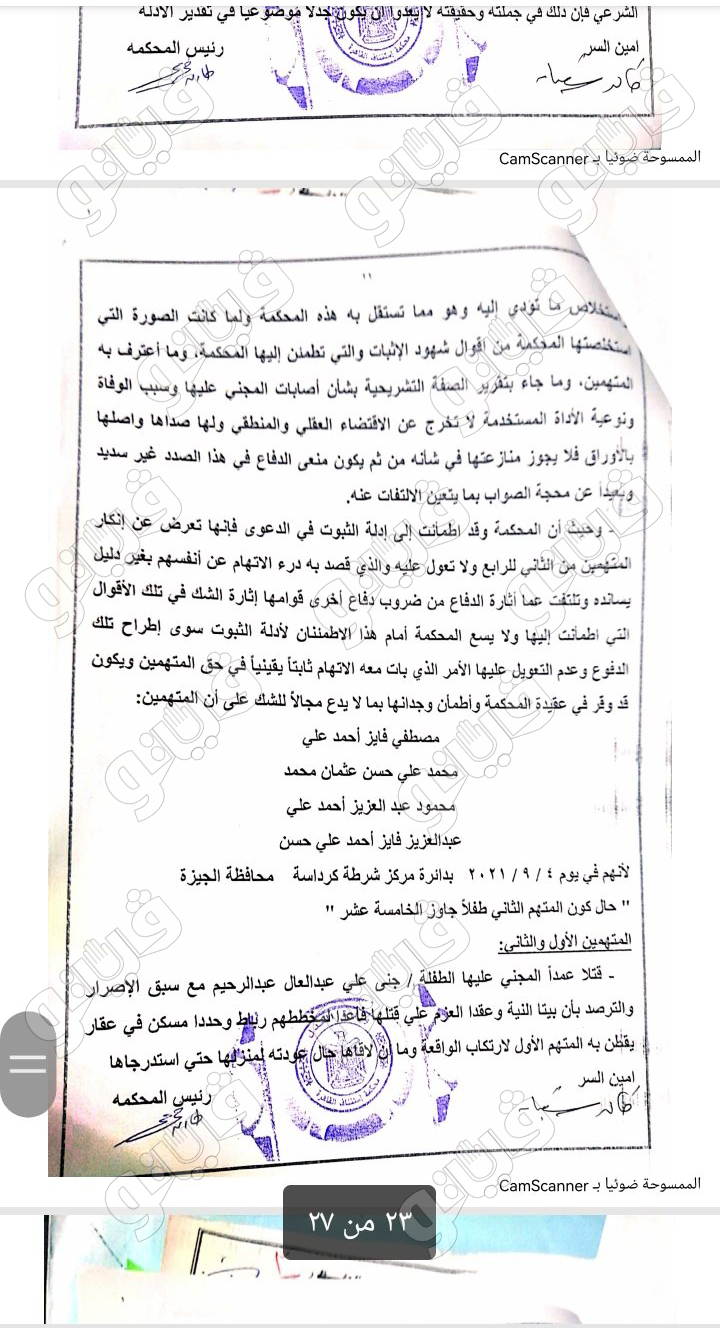 الشرعي فإن ذلك في جملته وحقيقته لا يعدوا ان يكون جدلا موضوعيا في تقدير الادله
امين السر
رئيس المحكمه
الممسوحة ضوئيا بـ CamScanner
١١
ستخلاص ما تؤدي إليه وهو مما تستقل به هذه المحكمة ولما كانت الصورة التي
استخلصتها المحكمة من اقوال شهود الإثبات والتي تطمئن إليها المحكمة، وما أعترف به
المتهمين، وما جاء بتقرير الصفة التشريحية بشأن أصابات المجني عليها وسبب الوفاة
ونوعية الأداة المستخدمة لا تخرج عن الاقتضاء العقلي والمنطقي ولها صداها واصلها
بالأوراق فلا يجوز منازعتها في شأنه من ثم يكون منعى الدفاع في هذا الصدد غير سديد
وبعيداً عن محجة الصواب بما يتعين الالتفات عنه.
- وحيث أن المحكمة وقد اطمأنت إلى إدلة الثبوت في الدعوى فإنها تعرض عن إنكار
المتهمين من الثاني للرابع ولا تعول عليه والذي قصد به درء الاتهام عن أنفسهم بغير دليل
يسانده وتلتفت عما أثارة الدفاع من ضروب دفاع أخرى قوامها إثارة الشك في تلك الأقوال
التي اطمأنت إليها ولا يسع المحكمة أمام هذا الاطمئنان لأدلة الثبوت سوى إطراح تلك
الدفوع وعدم التعويل عليها الأمر الذي بات معه الاتهام ثابتاً يقينياً في حق المتهمين ويكون
قد وقر في عقيدة المحكمة وأطمأن وجدانها بما لا يدع مجالاً للشك على أن المتهمين:
مصطفي فايز أحمد علي
محمد علي حسن عثمان محمد
محمود عبد العزيز أحمد علي
عبدالعزيز فايز أحمد علي حسن
لأنهم في يوم ٤ / ٩ / ٢٠٢١ بدائرة مركز شرطة كرداسة محافظة الجيزة
" حال كون المتهم الثاني طفلاً جاوز الخامسة عشر "
المتهمين الأول والثاني:
- قتلا عمداً المجني عليها الطفلة / جنى علي عبدالعال عبدالرحيم مع سبق الإصرار
والترصد بأن بيتا النية وعقدا العزم علي قتلها فأعدا لمخططهم رباط وحددا مسكن في عقار
يقطن به المتهم الأول لارتكاب الواقعة وما أن لاقاها حال عودته لمنزلها حتي استدرجاها
امين السر
رئيس المحكمه
الممسوحة ضوئيا بـ CamScanner
٢٣ من ٢٧